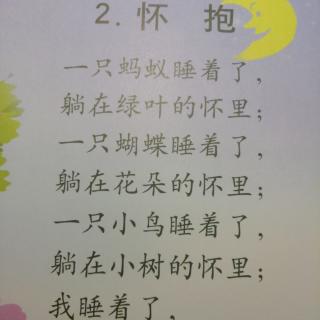 2. 怀 抱
一只蚂蚁睡着了，
躺在绿叶的怀里；
一只蝴蝶睡着了，
躺在花朵的怀里；
一只小鸟睡着了，
躺在小树的怀里；
我睡着了，